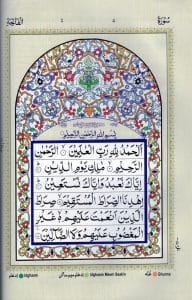 الفاتحة ١ ٢ سورة
بسم الله الرحمن الرحيم
الحمد لله رب العلمين الرحمن
الرحيم ملك يوم الدين
اياك نعبد واياك نستعين
اهدنا الصراط المستقيم صراط
الذين انعمت عليهم غير
المغضوب عليهم ولا الضالين
Idgham
Idgham Meem Saakin
Ghunna